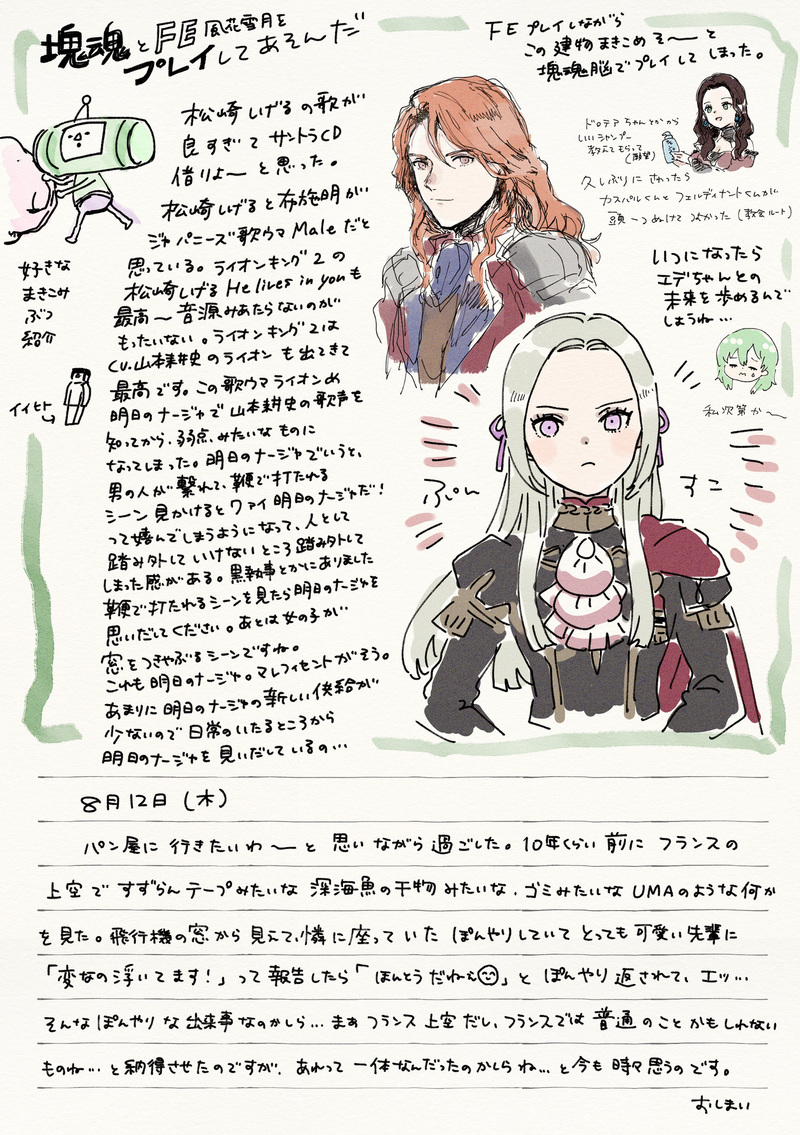 塊魂とFE風花雪月を
プレイしてあそんだ
松崎しげるの歌が
良すぎてサントラCD
借りよ〜と思った。
松崎しげると布施明が
ジャパニーズ歌ウマMaleだと
思っている。ライオンキング2の
松崎しげるHe lives in youも
最高〜音源みあたらないのが
もったいない。ライオンキング2は
cv.山本耕史のライオンも出てきて
最高です。この歌ウマライオンめ
明日のナージャで山本耕史の歌声を
知ってから、弱点みたいなものに
なってしまった。明日のナージャでいうと、
男の人が繋れて、鞭で打たれる
シーン見かけるとワァイ明日のナージャだ!
って嬉んでしまうようになって、人として
踏み外していけないところ踏み外して
しまった感がある。黒執事とかにありました
鞭で打たれるシーンを見たら明日のナージャを
思いだしてください。あとは女の子が
窓をつきやぶるシーンですね。
これも明日のナージャ。マレフィセントがそう。
あまりに明日のナージャの新しい供給が
少ないので日常のいたるところから
明日のナージャを見いだしているの…
好きな
まきこみ
ぶつ
紹介
イイヒト
FEプレイしながら
この建物まきこめそ〜と
塊魂脳でプレイしてしまった。
ドロテアちゃんとかから
いいシャンプー
教えてもらって
(願望)
久しぶりにさわったら
カスパルくんとフェルディナントくんが
頭一つぬけてつよかった(教会ルート)
いつになったら
エデちゃんとの
未来を歩めるんで
しょうね…
私次第か〜
ぷん
すこ
8月12日(木)
パン屋に行きたいわ〜と思いながら過ごした。10年くらい前にフランスの
上空ですずらんテープみたいな深海魚の干物みたいな、ゴミみたいなUMAのような何か
を見た。飛行機の窓から見えて、憐に座っていたぽんやりしていてとっても可愛い先輩に
「変なの浮いてます!」って報告したら「ほんとうだねぇ」とぽんやり返されて、エッ…
そんなぽんやりな出来事なのかしら…まぁフランス上空だし、フランスでは普通のことかもしれない
ものね…と納得させたのですが、あれって一体なんだったのかしらね…と今も時々思うのです。
おしまい